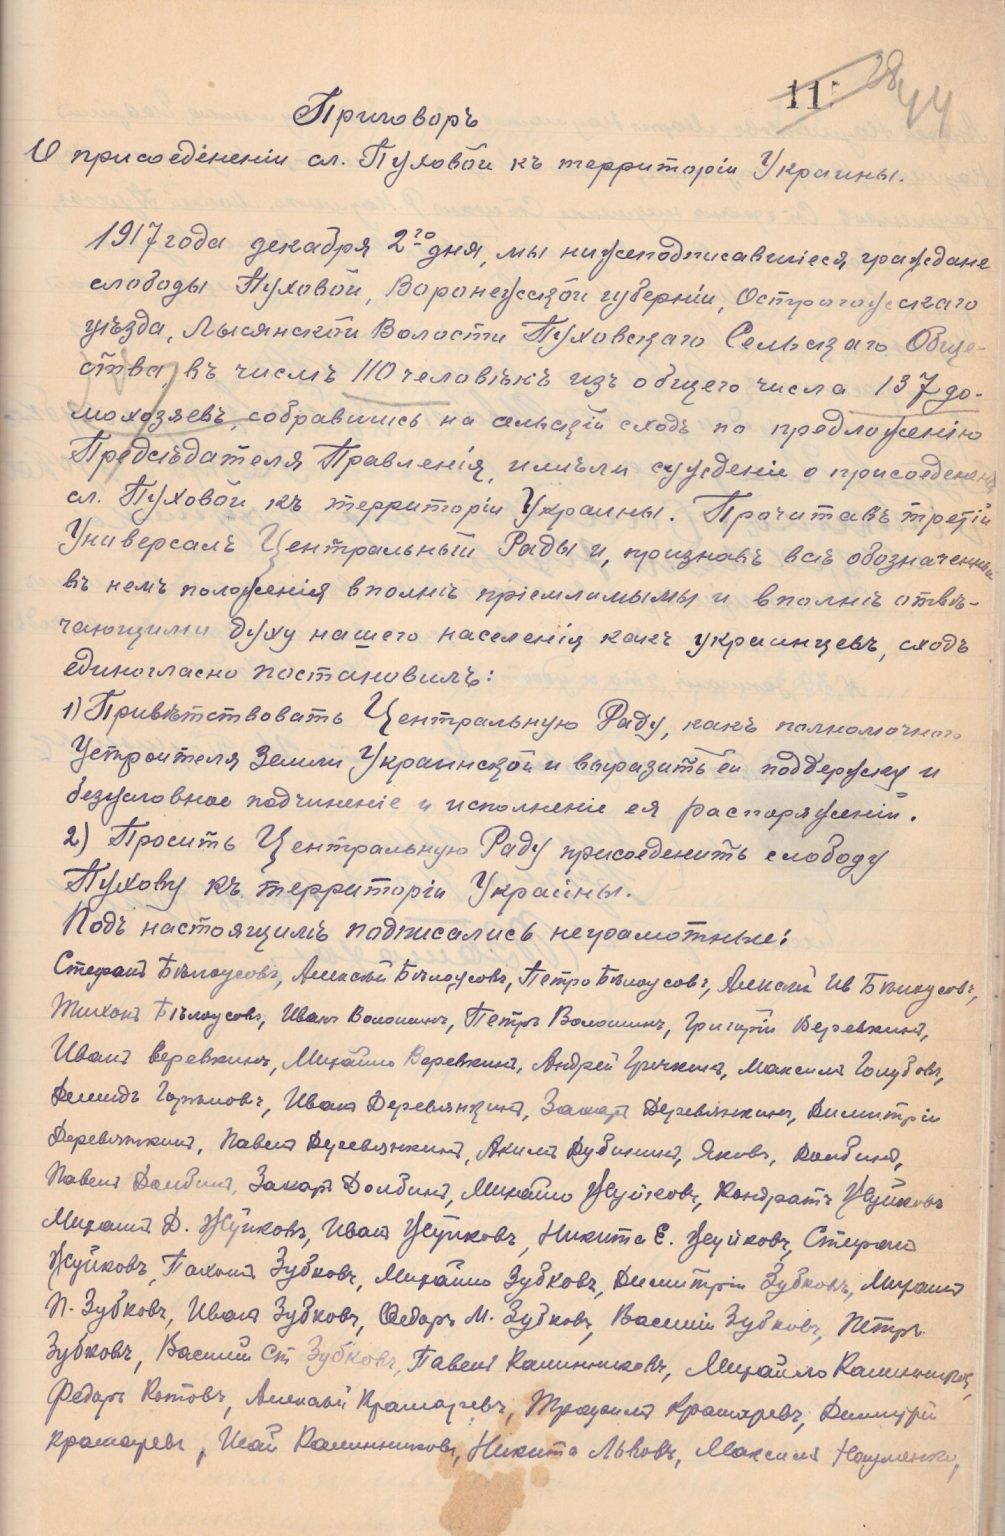 11
28
44
Приговоръ
О присоедіненіи сл. Пуховой къ территоріи Украины.
1917 года декабря 2го дня, мы нижеподписавшіеся граждане
слободы Пуховой, Воронежской губерніи, Острогожскаго
уѣзда, Лысянской Волости Пуховскаго Сельскаго Обще-
ства, въ числѣ 110 человѣкъ изъ общего числа 137 до-
мохозяевъ, собравшись на сельскій сходъ по предложенію
Предсѣдателя Правленія, имѣли сужденіе о присоеденені
сл. Пуховой къ территоріи Украины. Прочитавъ третій
Универсалъ Центральный Рады и, признавъ всѣ обозначенныя
въ немъ положенія вполнѣ пріемлимымы и вполнѣ отвѣ-
чающими духу нашего населенія какъ украинцевъ, сходъ
единогласно постановилъ:
1) Привѣтствовать Центральную Раду, какъ полномочного
Устроителя Земли Украинской и выразить ей поддержку и
безусловное подчиненіе и исполненіе ея распоряженій.
2) Просить Центральную Раду присоеденить слободу
Пухову къ территоріи Украины.
Подъ настоящимъ подписались неграмотные:
Стефанъ Бѣлоусовъ, Алексѣй Бѣлоусовъ, Петро Бѣлоусовъ, Алексѣй Ив Бѣлоусовъ,
Тихонъ Бѣлоусовъ, Иванъ Волошинъ, Петръ Волошинъ, Григорій Веревкинъ,
Иванъ Веревкинъ, Михайло Веревкинъ, Андрей Гречкинъ, Максимъ Голубовъ,
Демидъ Иванъ Деревянкинъ, Захаръ Деревянкинъ, Димитрій
Деревянкинъ, Павелъ Деревянкинъ, Акимъ Дубининъ, Яковъ, Долбинъ,
Павелъ Долбинъ, Захаръ Долбинъ, Михайло Жуйковъ, Кондратъ Жуйковъ
Михаилъ Д. Жуйковъ, Иванъ Жуйковъ, Никита Е. Жуйковъ, Стефанъ
Жуйковъ, Пахомъ Зубковъ, Михайло Зубковъ, Димитрій Зубковъ, Михаилъ
П. Зубковъ, Иванъ Зубковъ, Федоръ М. Зубковъ, Василій Зубковъ, Петръ
Зубковъ, Василій Ст Зубковъ, Павелъ Калинниковъ, Михайло Калинниковъ,
Федоръ Котовъ, Алексѣй Крамаревъ, Трофимъ Крамаревъ, Димитрій
Крамаревъ, Исай Калинниковъ, Никита Львовъ, Максимъ Науменко,